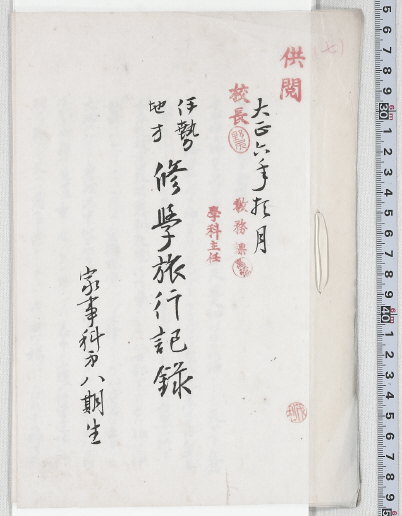 供閲
(七)
校長
教務課
學科主任
大正六年拾月
伊勢
地方
修學旅行記録
家事科第八期生
30
1
2
3
4
5
6
7
8
9
40
1
2
3
4
5
6
7
8
9